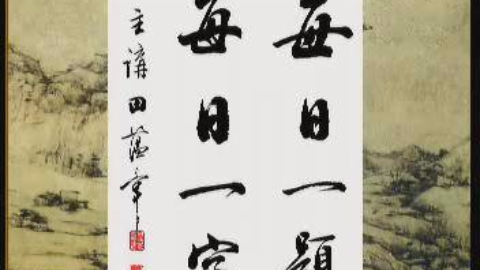 每日一題
每日一字
主講 田蘊章